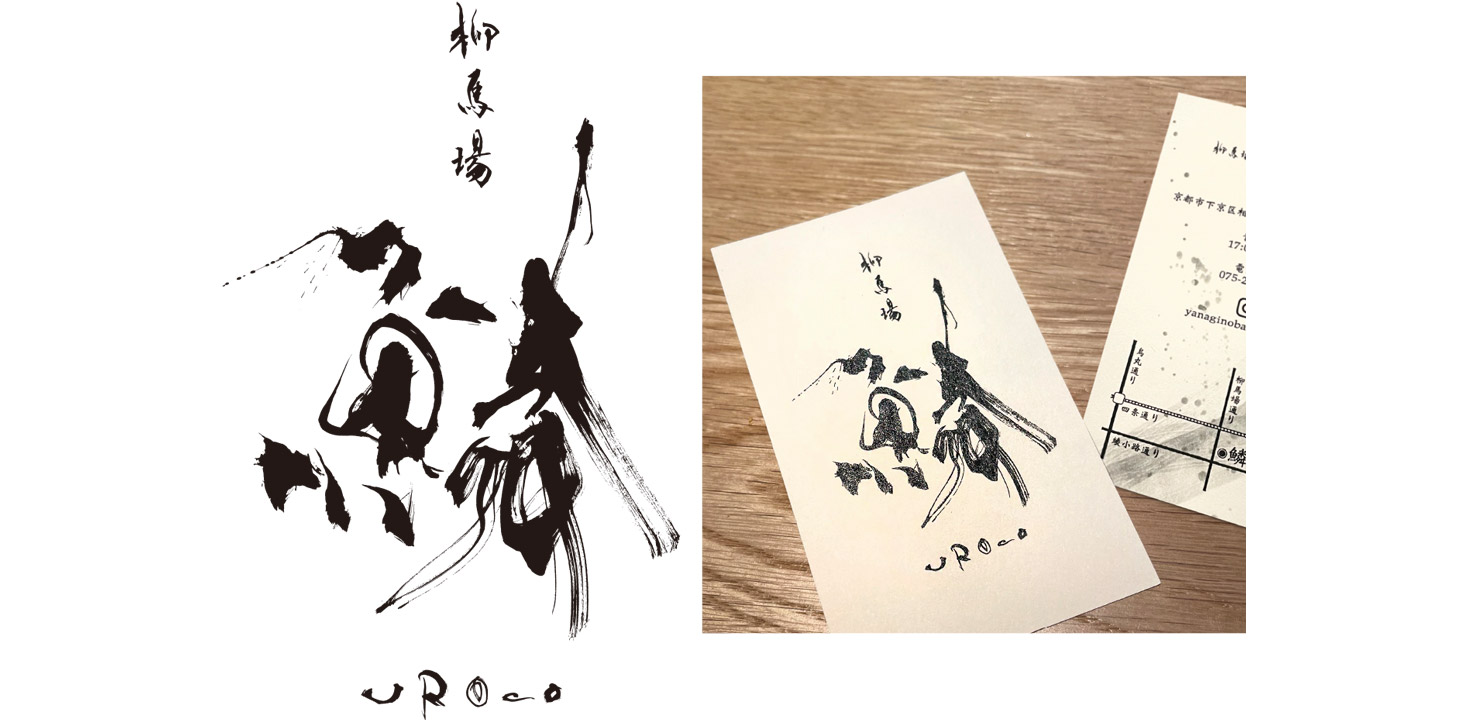 柳馬場
鱗
UROco
柳馬場
鱗
UROco
柳馬
京都市下京区
17:0
電
075-2
yanaginoba
烏丸通り
柳馬場通り
四条通り
綾小路通り
◉鱗